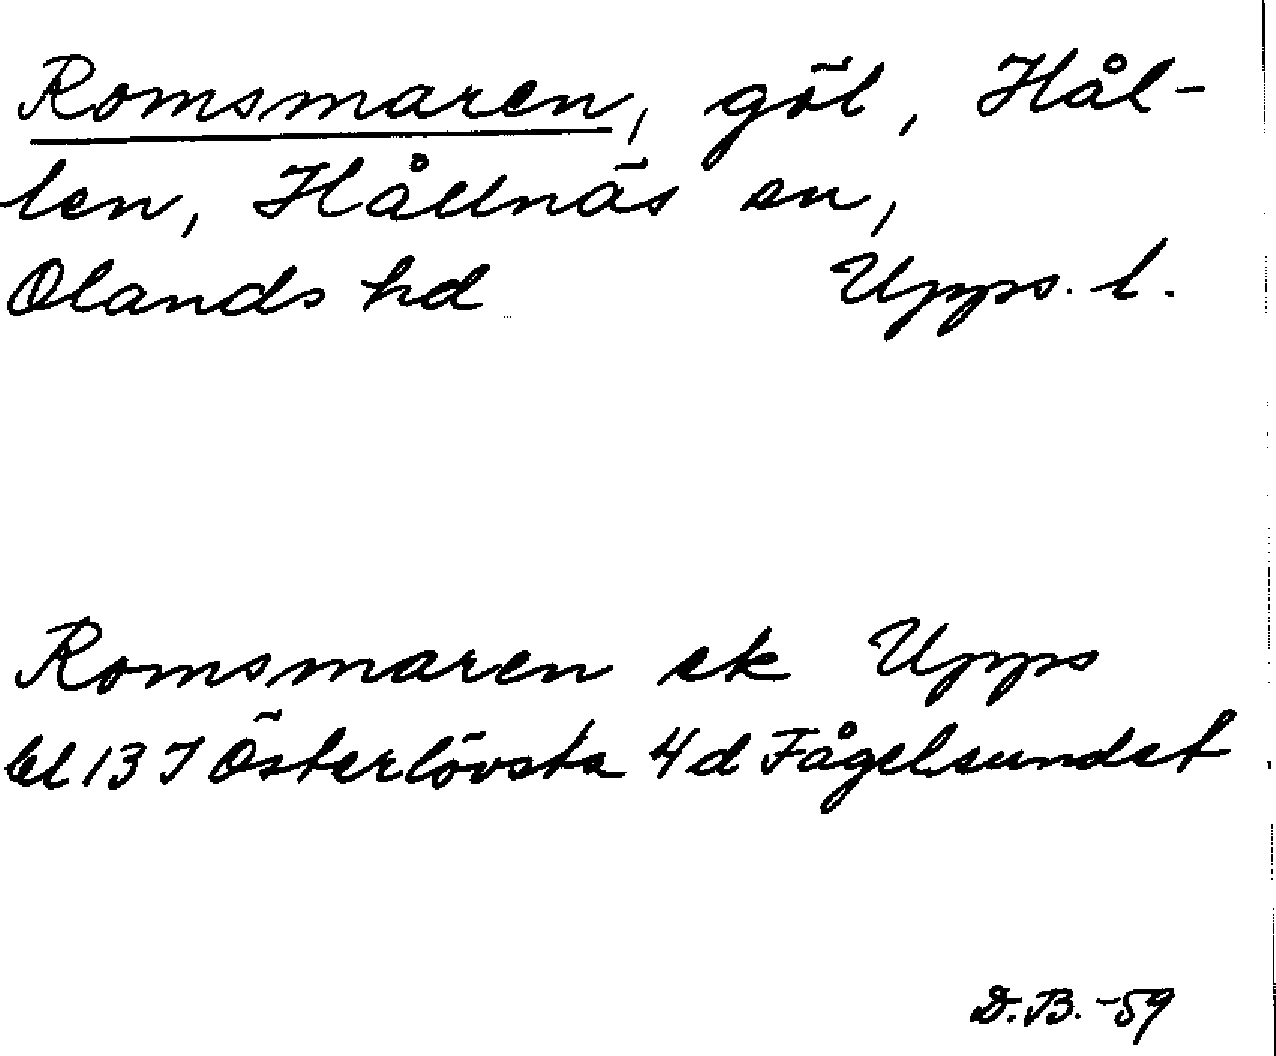 Romsmaren, göl, Hål-
len, Hållnäs sn,
Olands hd Upps. l.
Romsmaren ek Upps
bl 13 I Österlövsta 4d Fågelsundet
D.B. -59